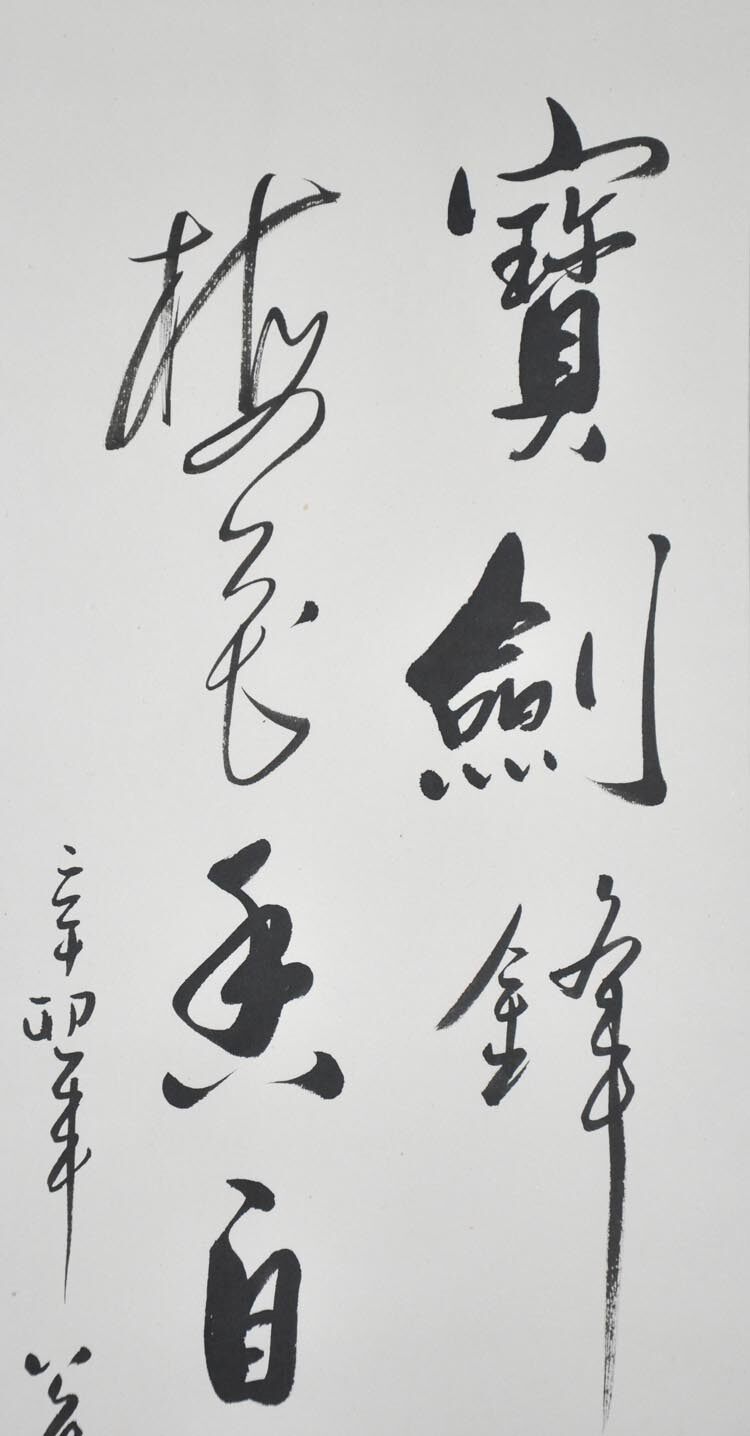 寶劍鋒
梅花香自
辛卯年